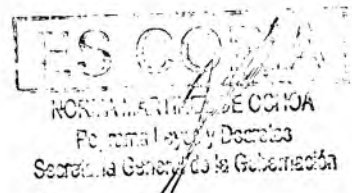 ES COPIA
NORMA MARTINEZ DE OCHOA
Leyes y Decretos
Secretaria General de la Gobernación